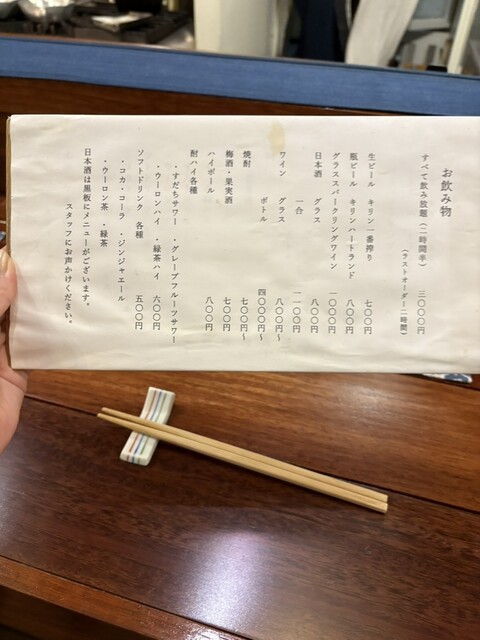 お飲み物
すべて飲み放題（二時間半） 三〇〇〇円
（ラストオーダー二時間）
生ビール キリン一番搾り 七〇〇円
瓶ビール キリンハートランド 八〇〇円
グラススパークリングワイン 一〇〇〇円
日本酒 グラス 八〇〇円
一合 一一〇〇円
ワイン グラス 八〇〇円～
ボトル 四〇〇〇円～
焼酎 七〇〇円～
梅酒・果実酒 七〇〇円
ハイボール 八〇〇円
酎ハイ各種
・すだちサワー ・グレープフルーツサワー
・ウーロンハイ ・緑茶ハイ 六〇〇円
ソフトドリンク 各種 五〇〇円
・コカ・コーラ ・ジンジャエール
・ウーロン茶 ・緑茶
日本酒は黒板にメニューがございます。
スタッフにお声かけください。